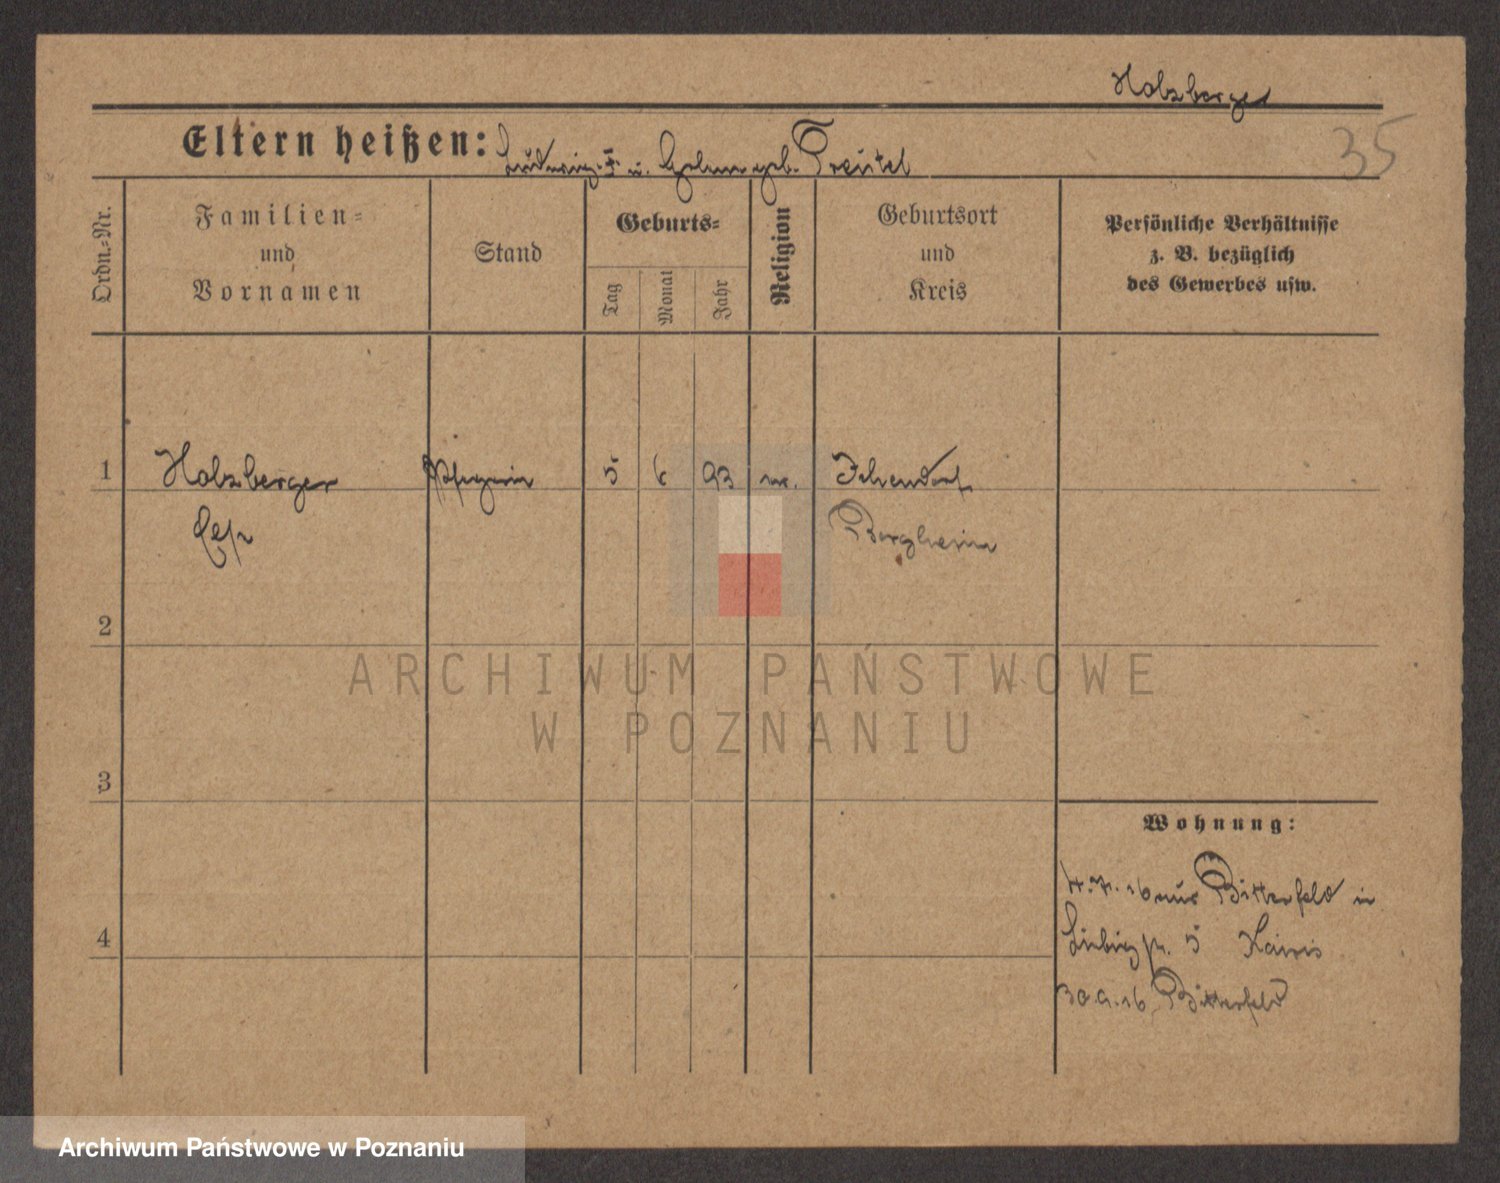 Holzberger
35
Eltern heißen: Ludwig I u. geb. Treutel
Ordn.-Nr.
Familien-
und
Vornamen
Stand
Geburts-
Tag
Monat
Jahr
Religion
Geburtsort
und
Kreis
Persönliche Verhältnisse
z. B. bezüglich
des Gewerbes usw.
1
Holzberger
5 6 93
Bergheim
2
3
4
Wohnung:
4.7.16 aus Bitterfeld in
Liebigstr. 5
30.9.16 Bitterfeld
ARCHIWUM PAŃSTWOWE
W POZNANIU
Archiwum Państwowe w Poznaniu